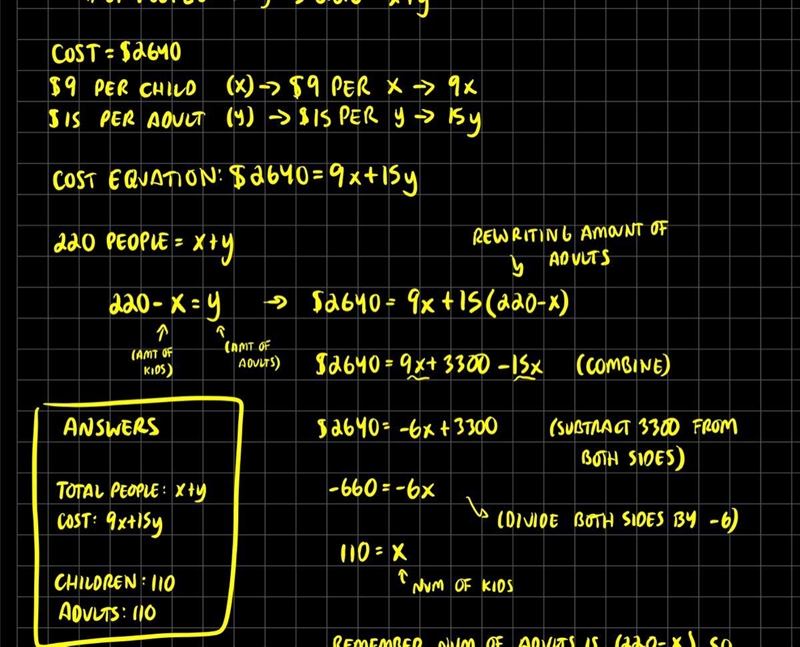 COST = $2640
$9 PER CHILD (x) → $9 PER x → 9x
$15 PER ADULT (y) → $15 PER y → 15y
COST EQUATION: $2640 = 9x+15y
220 PEOPLE = x+y
REWRITING AMOUNT OF
ADULTS
220 - x = y → $2640 = 9x + 15(220-x)
(AMT OF
KIDS)
(AMT OF
ADULTS)
$2640 = 9x + 3300 - 15x (COMBINE)
$2640 = -6x + 3300 (SUBTRACT 3300 FROM
BOTH SIDES)
-660 = -6x
(DIVIDE BOTH SIDES BY -6)
110 = x
NUM OF KIDS
ANSWERS
TOTAL PEOPLE: x+y
COST: 9x+15y
CHILDREN: 110
ADULTS: 110
REMEMBER NUM OF ADULTS IS (220-x) SO